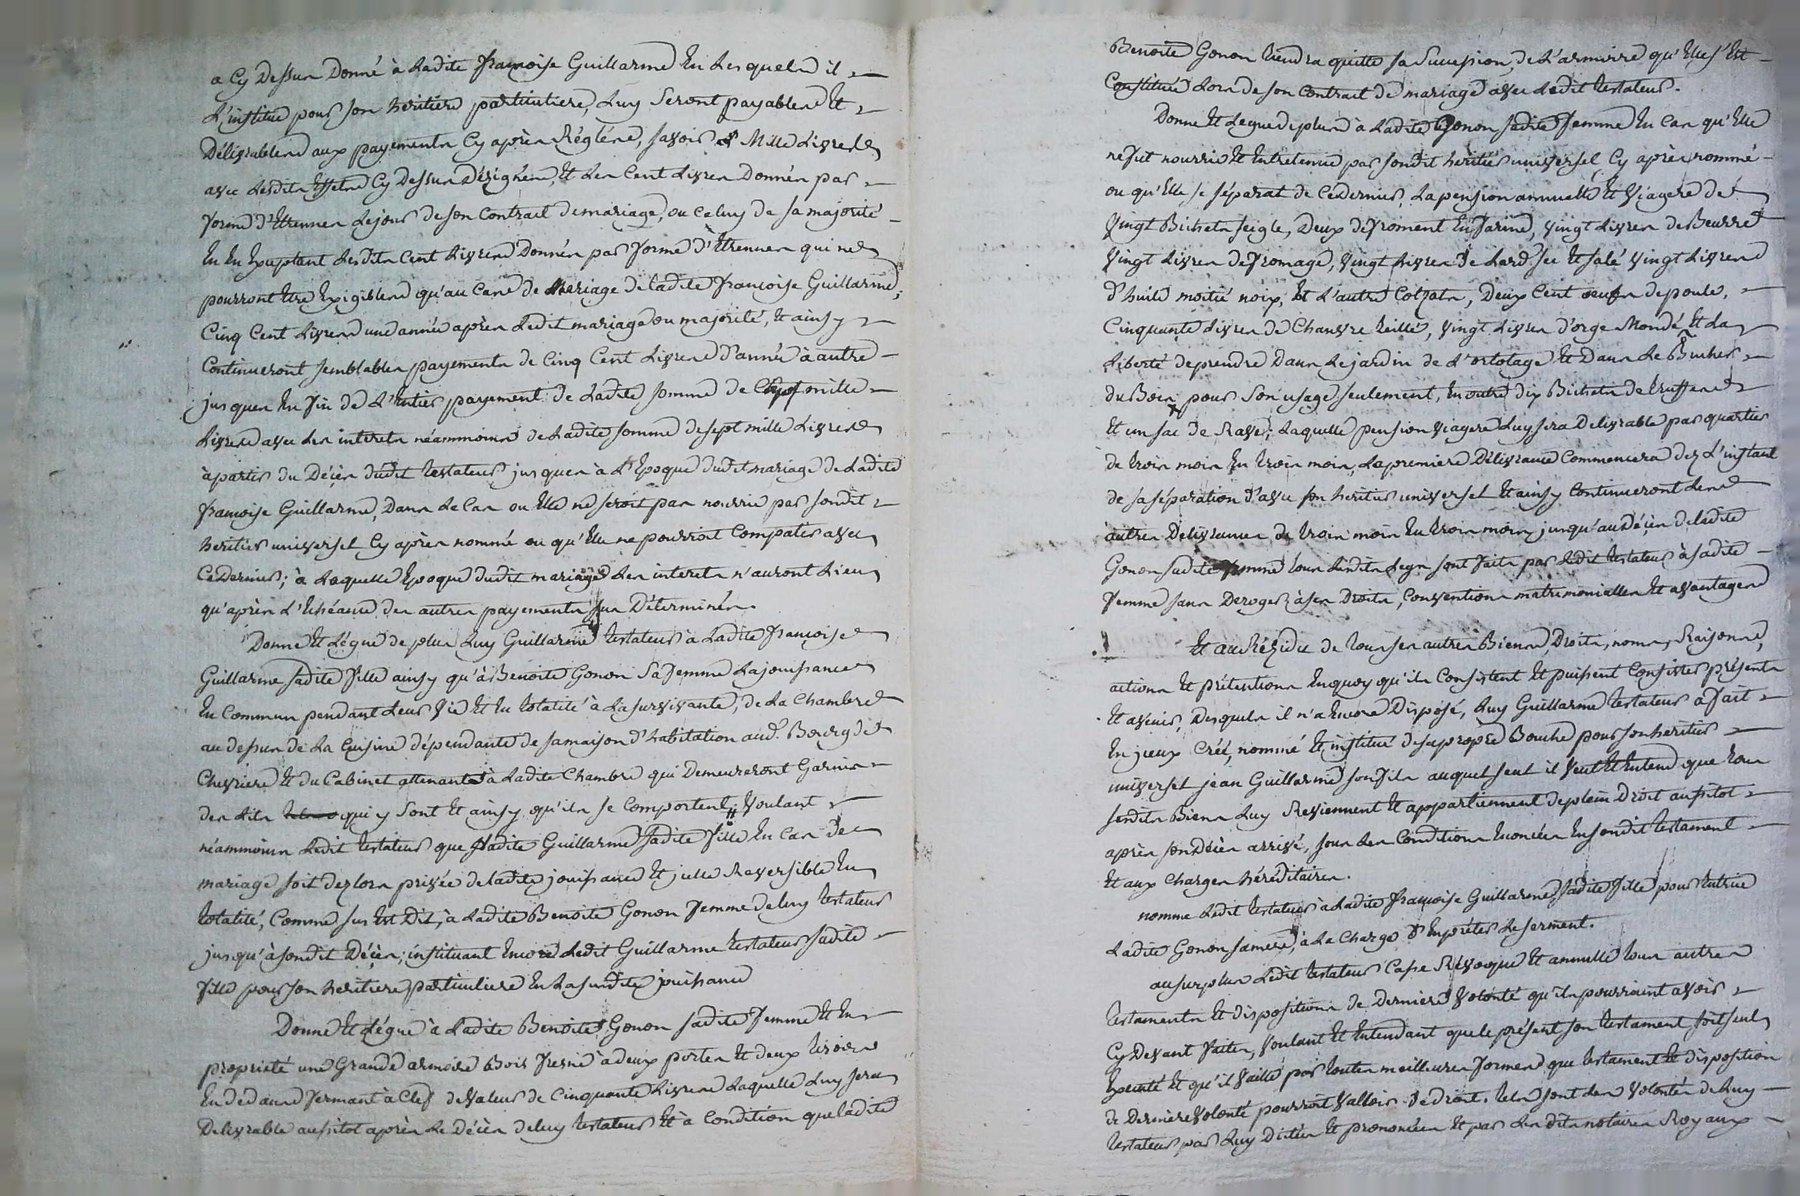 a Cy Dessus Donné à Ladite françoise Guillarme En Lesquels il
L'institue pour son héritiere particuliere, Luy Seront payables Et
Délivrables aux payements Cy après Réglés, savoir Mille Livres
avec Lesdits Effets Cy Dessus Désignés, Et Les Cent Livres Donnés par
forme d'Etrennes Le jour de son Contrat de mariage, ou Celuy de sa majorité
En En Exceptant Lesdits Cent Livres Donnés par forme d'Etrennes qui ne
pourront Etre Exigibles qu'au Cas de Mariage de Ladite françoise Guillarme,
Cinq Cent Livres une année après Ledit mariage ou majorité, Et ainsy
Continueront semblables payements de Cinq Cent Livres d'année à autre
jusques En fin de L'Entier payement de Ladite somme de sept mille
Livres avec Les interets néammoins de Ladite somme de sept mille Livres
à partir du Décès dudit testateur jusques à L'Epoque dudit mariage de Ladite
françoise Guillarme, Dans Le Cas ou Elle ne seroit pas nourrie par sondit
heritier universel Cy après nommé ou qu'Elle ne pourroit Compatir avec
Ce Dernier; à Laquelle Epoque dudit mariage Les interets n'auront Lieu
qu'après L'Echéance des autres payements sus Déterminés.
Donne Et Lègue de plus Luy Guillarme testateur à Ladite françoise
Guillarme sadite fille ainsy qu'à Benoite Gonon Sa femme La jouissance
En Commun pendant Leur Vie Et En totalité à La survivante, de La Chambre
au dessus de La Cuisine dépendante de sa maison d'habitation aud. Bourg de
Chevriere Et du Cabinet attenant à Ladite Chambre qui Demeureront Garnis
des Lits qui y Sont Et ainsy qu'ils se Comportent, Voulant
néammoins Ledit testateur que Ladite Guillarme sadite fille En Cas de
mariage soit dezlors privée de Ladite jouissance Et icelle Reversible En
totalité, Comme sus Est Dit, à Ladite Benoite Gonon femme de luy testateur
jusqu'à sondit Décès; instituant Encore Ledit Guillarme testateur sadite
fille pour son heritiere particuliere En La susdite jouissance
Donne Et Lègue à Ladite Benoite Gonon sadite femme Et En
propriété une Grande armoire Bois fresne à deux portes Et deux tiroirs
En dedans fermant à Clef de valeur de Cinquante Livres Laquelle Luy sera
Delivrable aussitot après Le Décès de luy testateur Et à Condition que Ladite
Benoite Gonon tiendra quitte sa Succession, de L'armoire qu'Elle s'Est
Constituée Lors de son Contrat de mariage avec Ledit testateur.
Donne Et Legue de plus à Ladite Gonon sadite femme En Cas qu'Elle
ne fut nourrie Et Entretenue par sondit heritier universel Cy après nommé
ou qu'Elle se séparat de Ce dernier, La pension annuelle Et Viagere de
Vingt Bichets seigle, Deux de froment En farine, Vingt Livres de Beurre
Vingt Livres de fromage, Vingt Livres de Lard sec Et salé Vingt Livres
d'huile moitié noix, Et L'autre Colzats, Deux Cent oeufs de poule,
Cinquante Livres de Chanvre teillé, Vingt Livres d'orge Mondé Et La
Liberté de prendre Dans Le jardin de L'ortolage Et Dans Le Bucher
du Bois pour Son usage seulement, En outre dix Bichets de truffes
Et un sac de Raves; Laquelle pension viagere Luy sera Delivrable par quartier
de trois mois En trois mois, La premiere Délivrance Commencera dez L'instant
de sa séparation d'avec son heritier universel Et ainsy Continueront Les
autres Délivrances de trois mois En trois mois jusqu'au Décès de Ladite
Gonon sadite femme tous Lesdits Legs sont faits par Ledit testateur à sadite
femme sans Deroger à ses Droits, Conventions matrimonialles Et avantages
Et au Résidu de tous ses autres Biens, Droits, noms, Raisons,
actions Et prétentions En quoy qu'ils Consistent Et puissent Consister présents
Et avenir, Desquels il n'a Encore Disposé, Luy Guillarme testateur a fait
En iceux Créé, nommé Et institué de sa propre Bouche pour son heritier
universel jean Guillarme son fils auquel seul il Veut Et Entend que tous
sesdits Biens Luy Reviennent Et appartiennent de plein Droit aussitot
après son Décès arrivé, sous Les Conditions Enoncées En sondit testament
Et aux Charges héréditaires.
nomme Ledit testateur à Ladite françoise Guillarme, sadite fille pour tutrice
Ladite Gonon sa mere, à La Charge d'En prêter Le serment.
au surplus Ledit testateur Casse Révoque Et annulle tous autres
testaments Et dispositions de Derniere Volonté qu'il pourroient avoir
Cy Devant faites, Voulant Et Entendant que Le présent son testament, soit seul
Executé Et qu'il Vaille par toutes meilleures formes que testament Et disposition
de Derniere Volonté pourront Valloir de droit. tels sont Les Volontés de Luy
testateur par Luy Dictées Et prononcées Et par Lesdits notaires Royaux